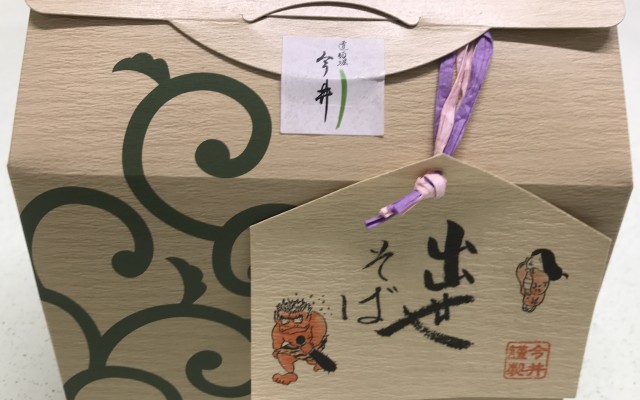 道頓堀
今井
出世
そば
今井
謹製